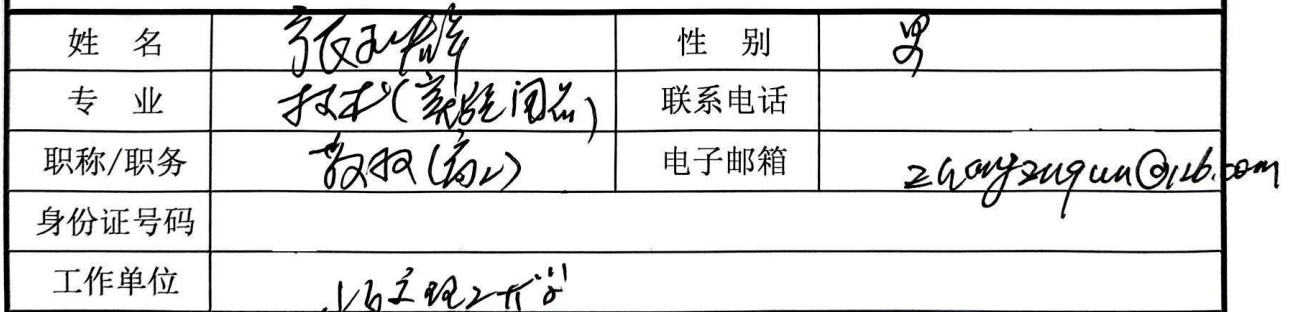 姓 名 张 性 别 男
专 业 技术( 联系电话
职称/职务 教授( 电子邮箱 zhangzuqun@126.com
身份证号码
工作单位 理工大学